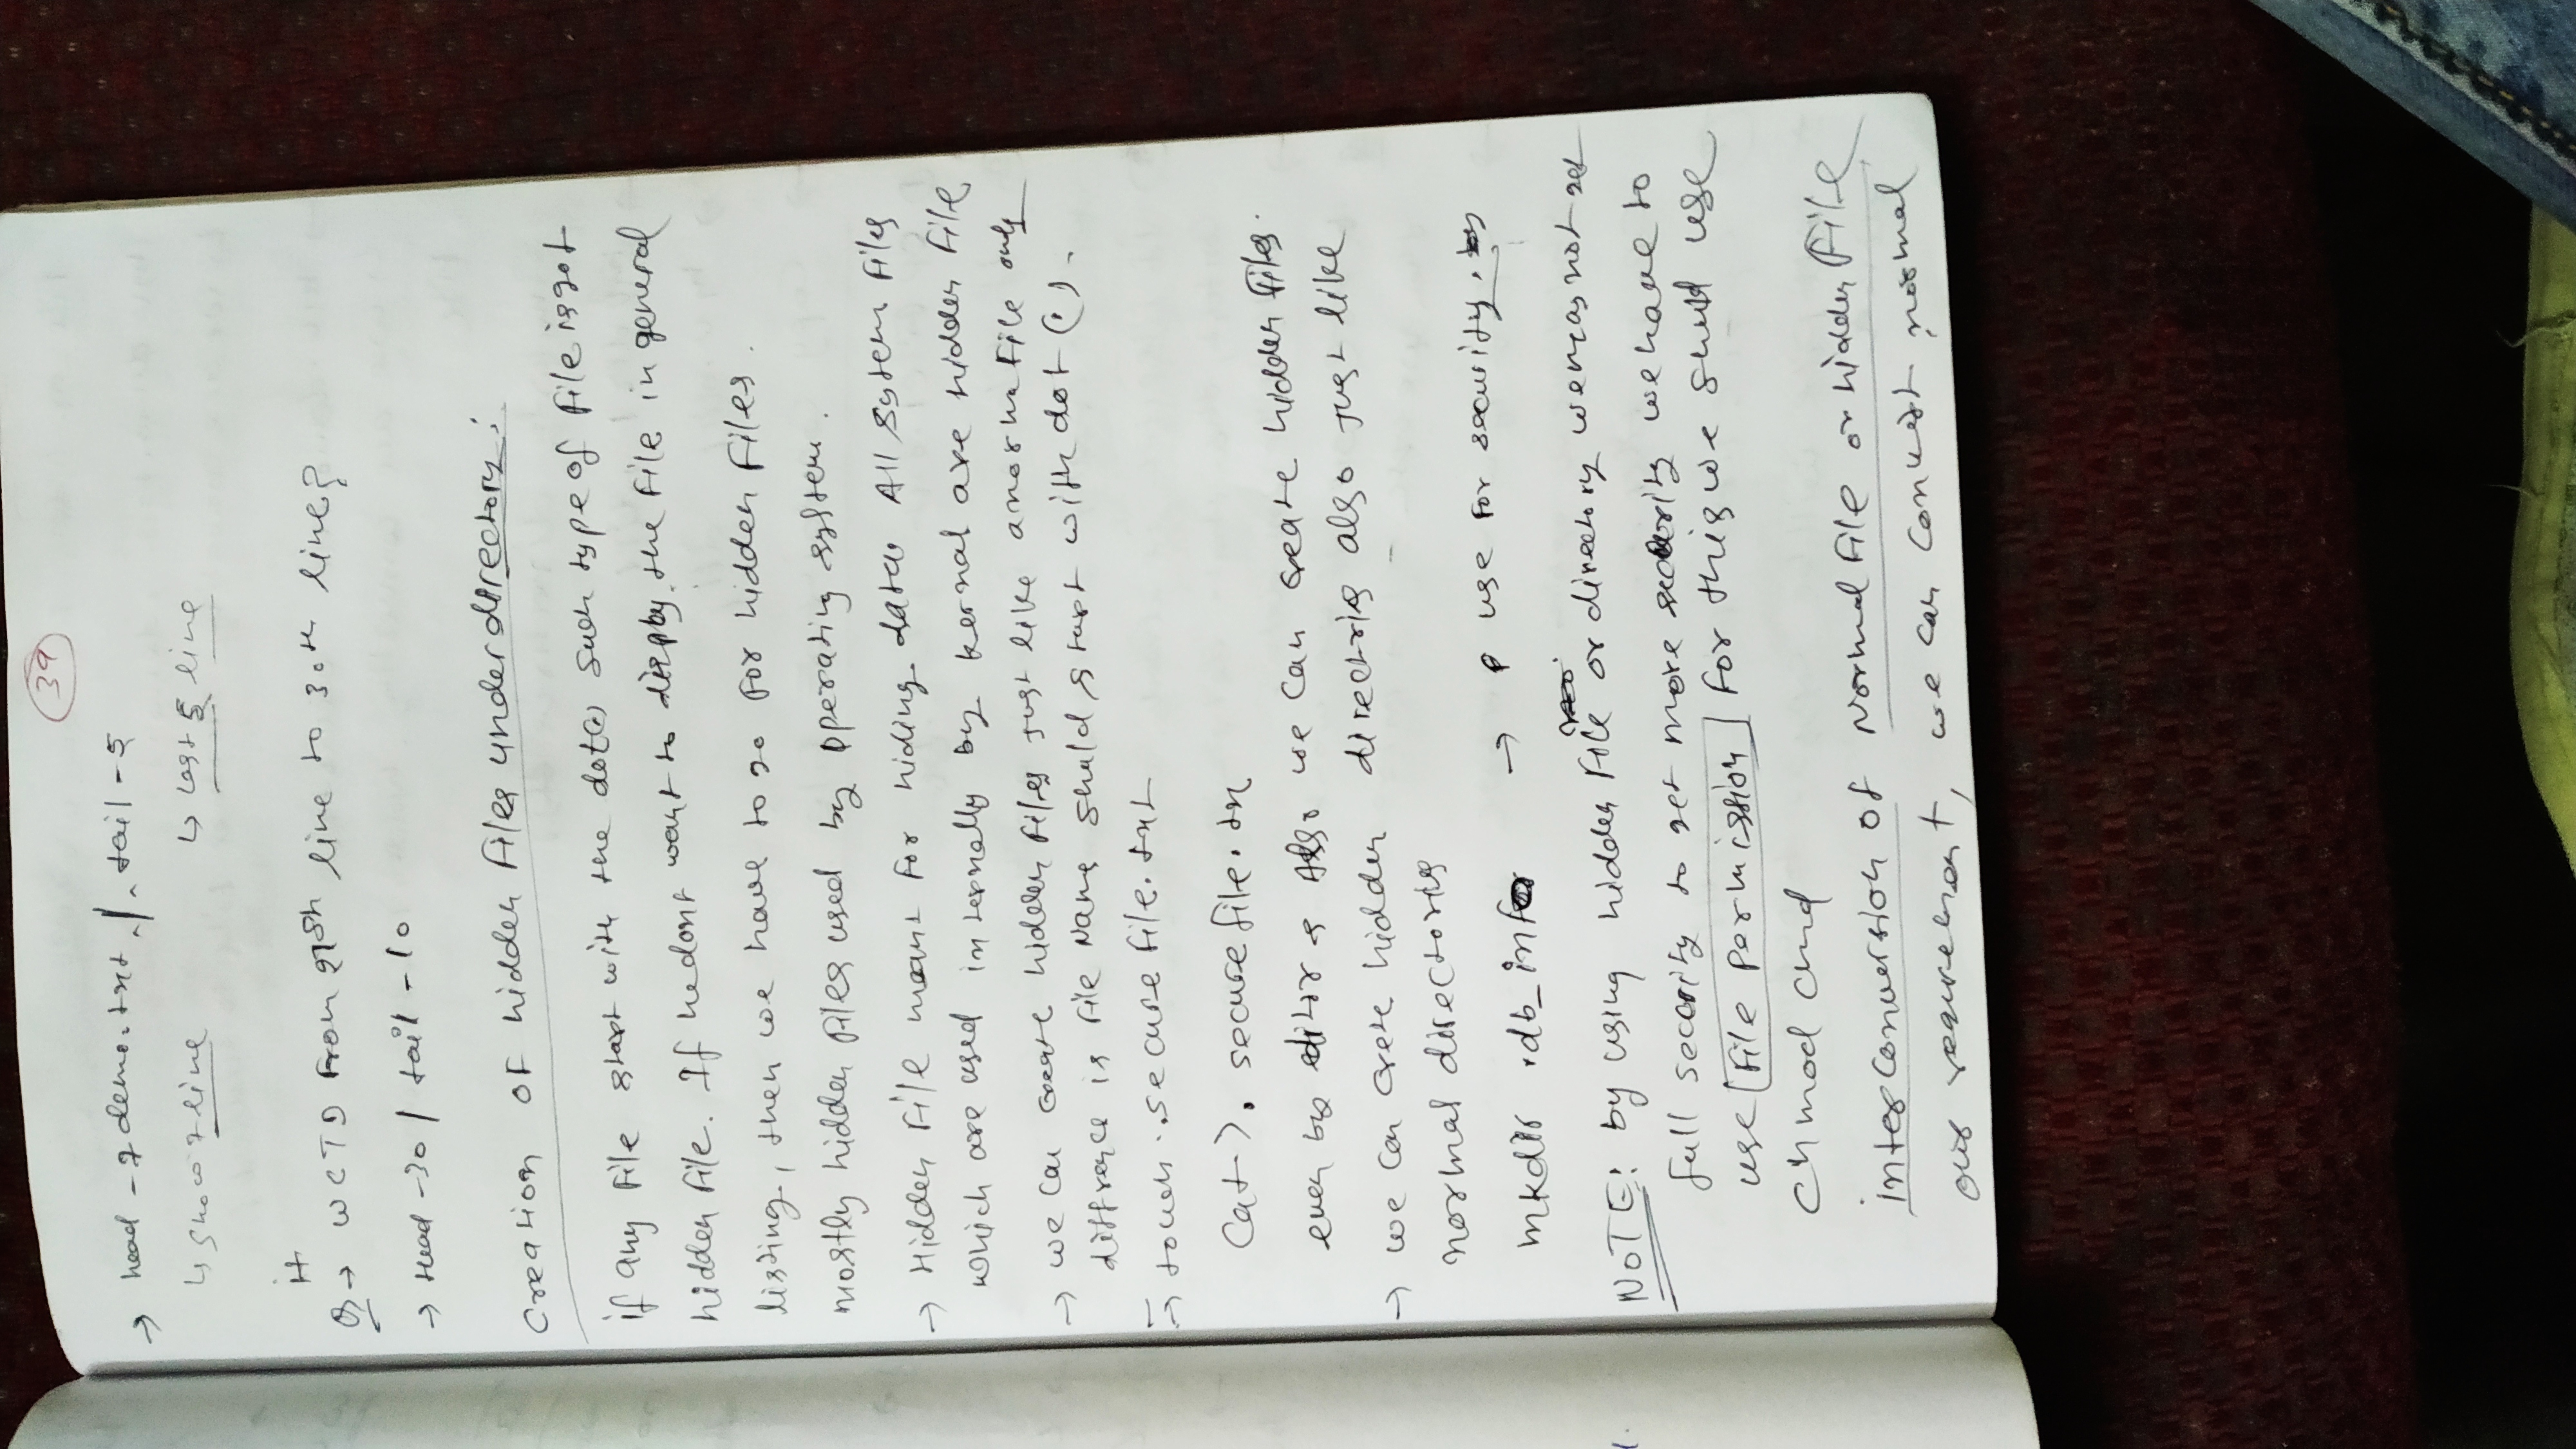 39
→ head -7 demo.txt | tail -5
↳ show 7 line ↳ last 5 line
It
Q → WCTD From 21sh line to 30th line?
→ Head -30 | tail -10
Creation OF hidden Files under directory:
if any File start with the dot(.) such type of file is got
hidden file. If he dont want to disply the File in general
listing, then we have to go For hidden Files.
mostly hidden Files used by operating system.
→ Hidden File meant For hiding data All System Files
which are used internally by kernal are hidden File
→ we can create hidden files Just like a norma File only
diffrence is File Name Shuld start with dot (.).
→ touch .securefile.txt
Cat > .securefile.tx
even by editor s Also we can create hidden Files.
→ we can crete hidden directris also Just like
normal directories
mkdir .db_info → use For security.
NOTE: by using hidden File or directory we may not get
full security to get more security we have to
use [File Permission] For this we shuld use
chmod cmd
interconversion of Normal File or hidden File
our requirement, we can convert normal